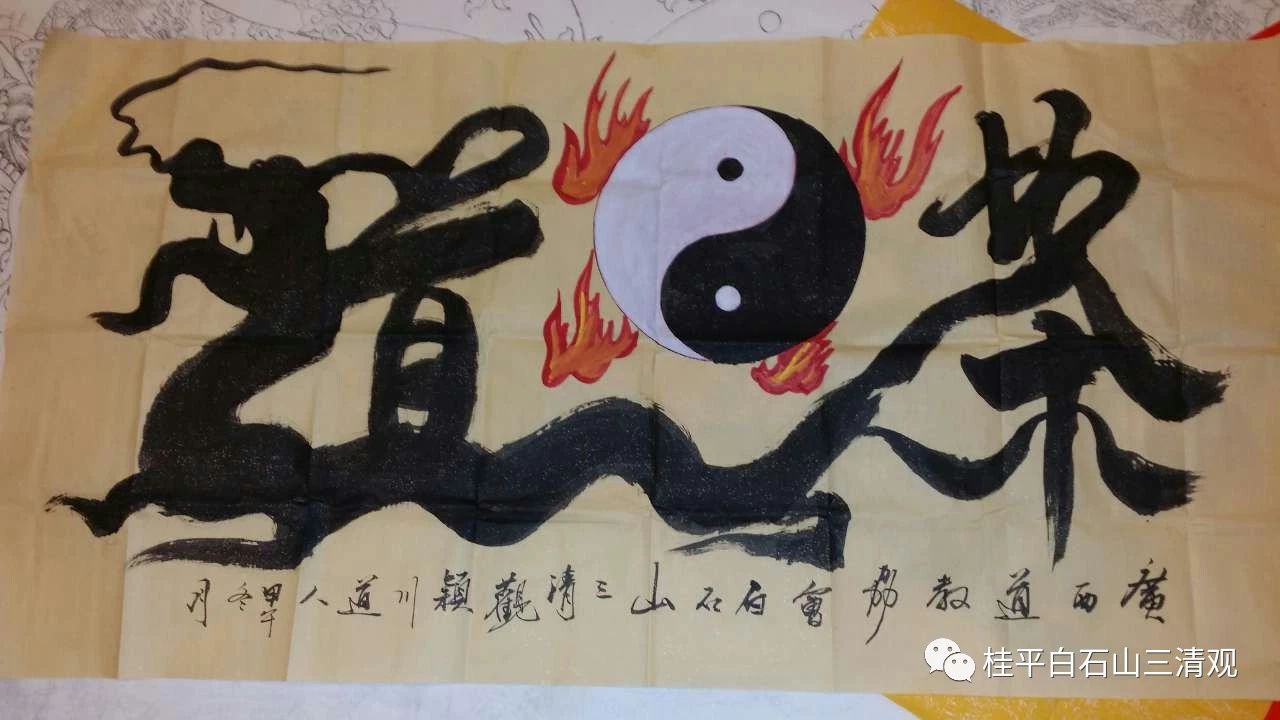 茶道
廣西道教協會白石山三清觀穎川道人甲午冬月
桂平白石山三清观